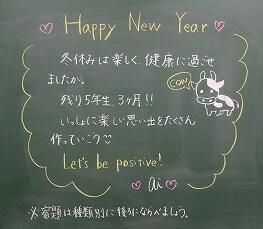 Happy New Year
冬休みは楽しく、健康に過せ
ましたか。
残り5年生、3ヶ月!!
いっしょに楽しい思い出をたくさん
作っていこう
COW
Let's be positive!
ai
※宿題は種類別に後ろにならべましょう。